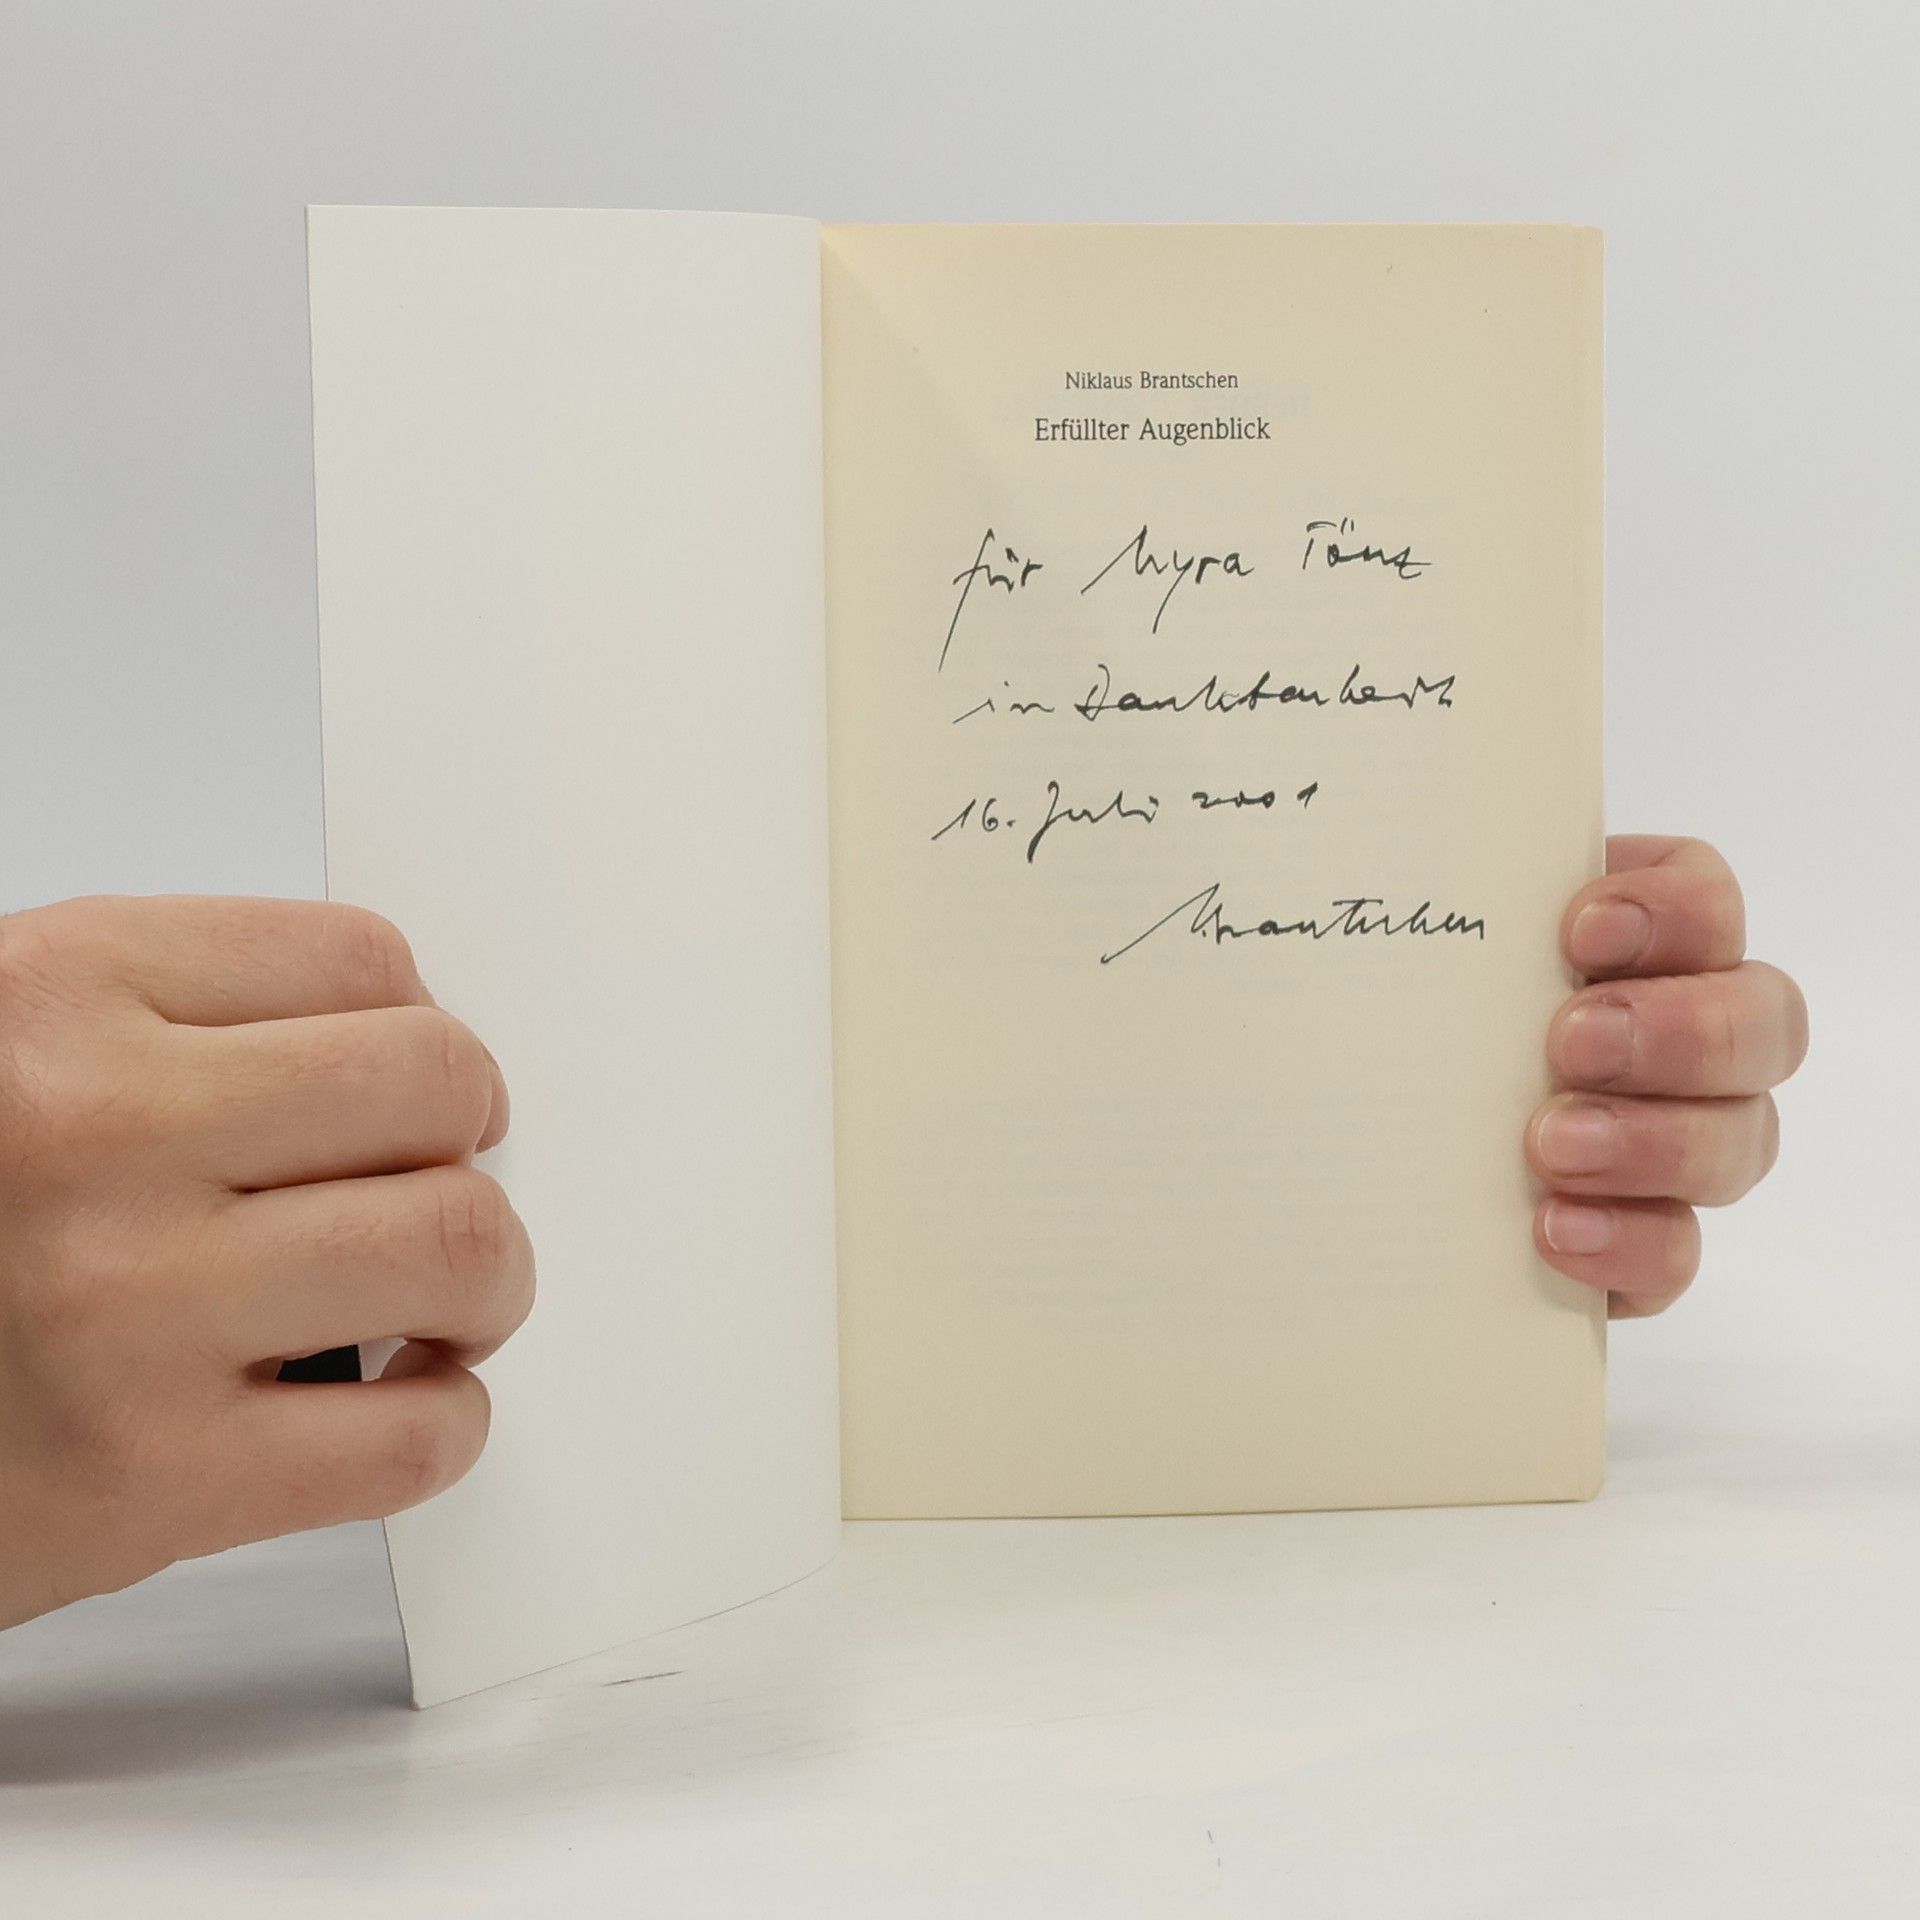 Niklaus Brantschen
Erfüllter Augenblick
für Myra Tönz
in Dankbarkeit
16. Juli 2001
N. Brantschen